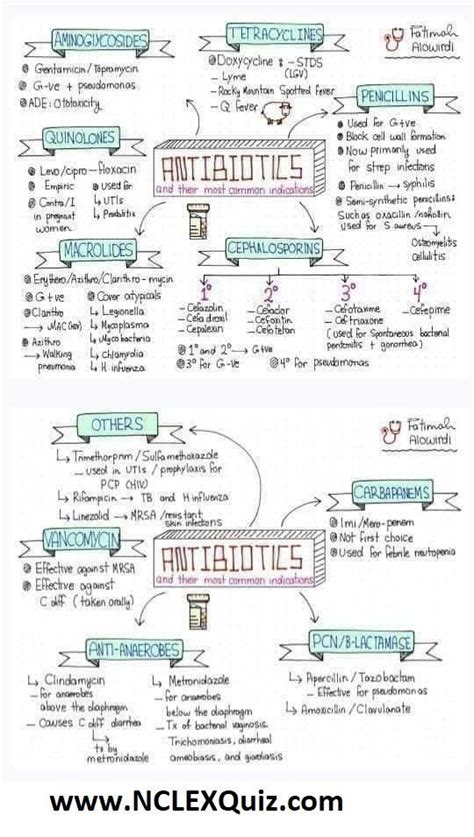 AMINOGLYCOSIDES
Gentamicin / Tobramycin
G-ve + pseudomonas
ADE: Ototoxicity
TETRACYCLINES
Doxycycline :- STDS
(LGV)
- Lyme
- Rocky Mountain Spotted Fever
- Q fever
Fatimah
Alowirdi
PENICILLINS
Used for G+ve
Block cell wall formation
Now primarily used
for strep infections
Penicillin → Syphilis
Semi-synthetic penicillins:
Such as oxacillin / nafcillin
used for S aureus
Osteomyelitis
Cellulitis
QUINOLONES
Levo/cipro-floxacin
Empiric
Used for
UTIs
Prostatitis
Contra/I
in pregnant
women
ANTIBIOTICS
and their most common indications
MACROLIDES
Erythro/Azithro/Clarithro-mycin
G+ve
Clarithro
→ MAC (HIV)
Azithro
→ Walking
pneumonia
Cover atypicals
Legonella
Mycoplasma
Mycobacteria
Chlamydia
H. influenza
CEPHALOSPORINS
1° 2° 3° 4°
- Cefazolin
- Cefadroxil
- Cephalexin
- Cefaclor
- Cefoxitin
- Cefotetan
- Cefotaxime
- Ceftriaxone
(used for Spontaneous bacterial
peritonitis + gonorrhea)
- Cefepime
1° and 2° → G+ve
3° for G-ve
4° for pseudomonas
OTHERS
Trimethoprim / Sulfamethoxazole
- used in UTIs / prophylaxis for
PCP (HIV)
Rifampicin → TB and H influenza
Linezolid → MRSA / resistant
skin infections
Fatimah
Alowirdi
CARBAPANEMS
Imi/Mero-penem
Not first choice
Used for febrile neutropenia
VANCOMYCIN
Effective against MRSA
Effective against
C diff (taken orally)
ANTIBIOTICS
and their most common indications
ANTI-ANAEROBES
Clindamycin
- for anaerobes
above the diaphragm
- Causes C diff diarrhea
tx by
metronidazole
Metronidazole
- for anaerobes
below the diaphragm
- Tx of bacterial vaginosis,
Trichomoniasis, diarrheal
amoebiasis, and giardiasis
PCN/B-LACTAMASE
Apercillin / Tazobactam
- Effective for pseudomonas
Amoxicillin / Clavulanate
www.NCLEXQuiz.com